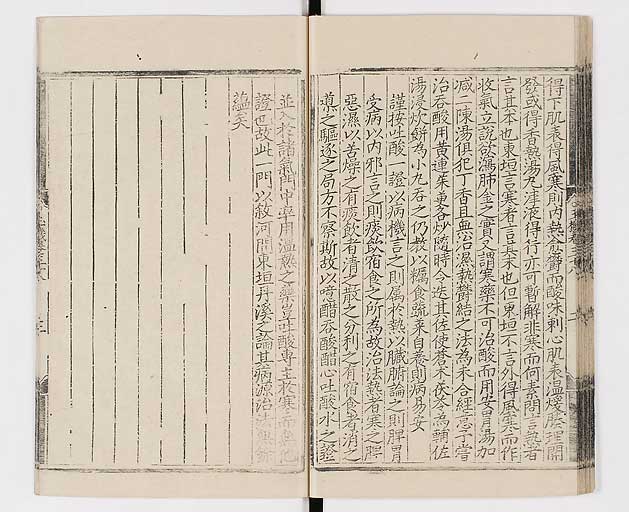 得下肌表得風寒則內熱愈鬱而酸味刺心肌表溫煖腠理開
發或得香熱湯丸津液得行亦可暫解非寒而何素問言熱者
言其本也東垣言寒者言其末也但東垣不言外得風寒而作
收氣立說欲瀉肺金之實又謂寒藥不可治酸而用安胃湯加
减二陳湯俱犯丁香且無治濕熱鬱結之法為未合經意予嘗
治吞酸用黃連茱萸各炒隨時令迭其佐使蒼朮茯苓為輔佐
湯浸炊餅為小丸吞之仍教以糲食蔬菜自養則病易安
謹按吐酸一證以病機言之則属於熱以臟腑論之則脾胃
受病以內邪言之則痰飲宿食之所為故治法熱者寒之脾
惡濕以苦燥之有痰飲者清之散之分利之有宿食者消之
導之驅逐之局方不察斯故以噫醋吞酸醋心吐酸水之證
並入於諸氣門中率用溫熱之藥豈吐酸專主於寒而無他
證也故此一門以敘河間東垣丹溪之論其病源治法無餘
蘊矣